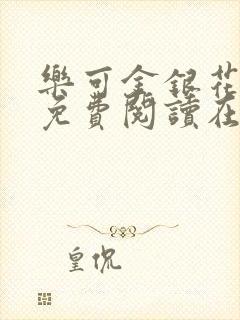 樂可金銀花
免費閱讀在
皇侃